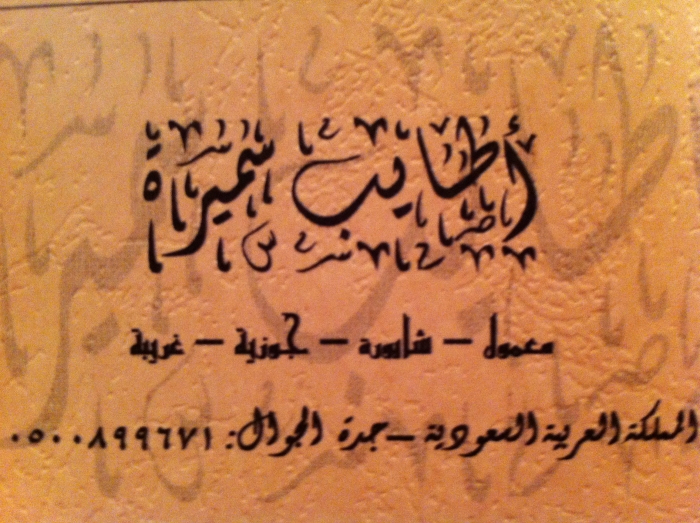 أطايب سميرة
معمول – شابورة – جوزية – غريبة
المملكة العربية السعودية – جدة الجوال: ٠٥٠٠٨٩٩٦٧١